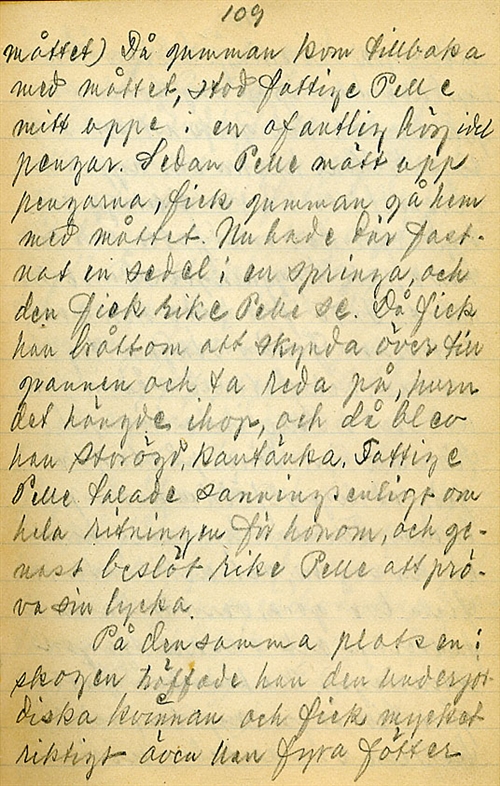 109
måttet) Då gumman kom tillbaka
med måttet, stod fattige Pelle
mitt uppe i en ofantlig hög idel
pengar. Sedan Pelle mätt upp
pengarna, fick gumman gå hem
med måttet. Nu hade där fast-
nat en sedel i en springa, och
den fick rike Pelle se. Då fick
han bråttom att skynda över till
grannen och ta reda på, huru
det hängde ihop, och då blev
han storögd, kantänka. Fattige
Pelle talade sanningsenligt om
hela ritningen för honom, och ge-
nast beslöt rike Pelle att prö-
va sin lycka.
På densamma platsen i
skogen träffade han den underjor-
diska kvinnan och fick mycket
riktigt även han fyra fötter